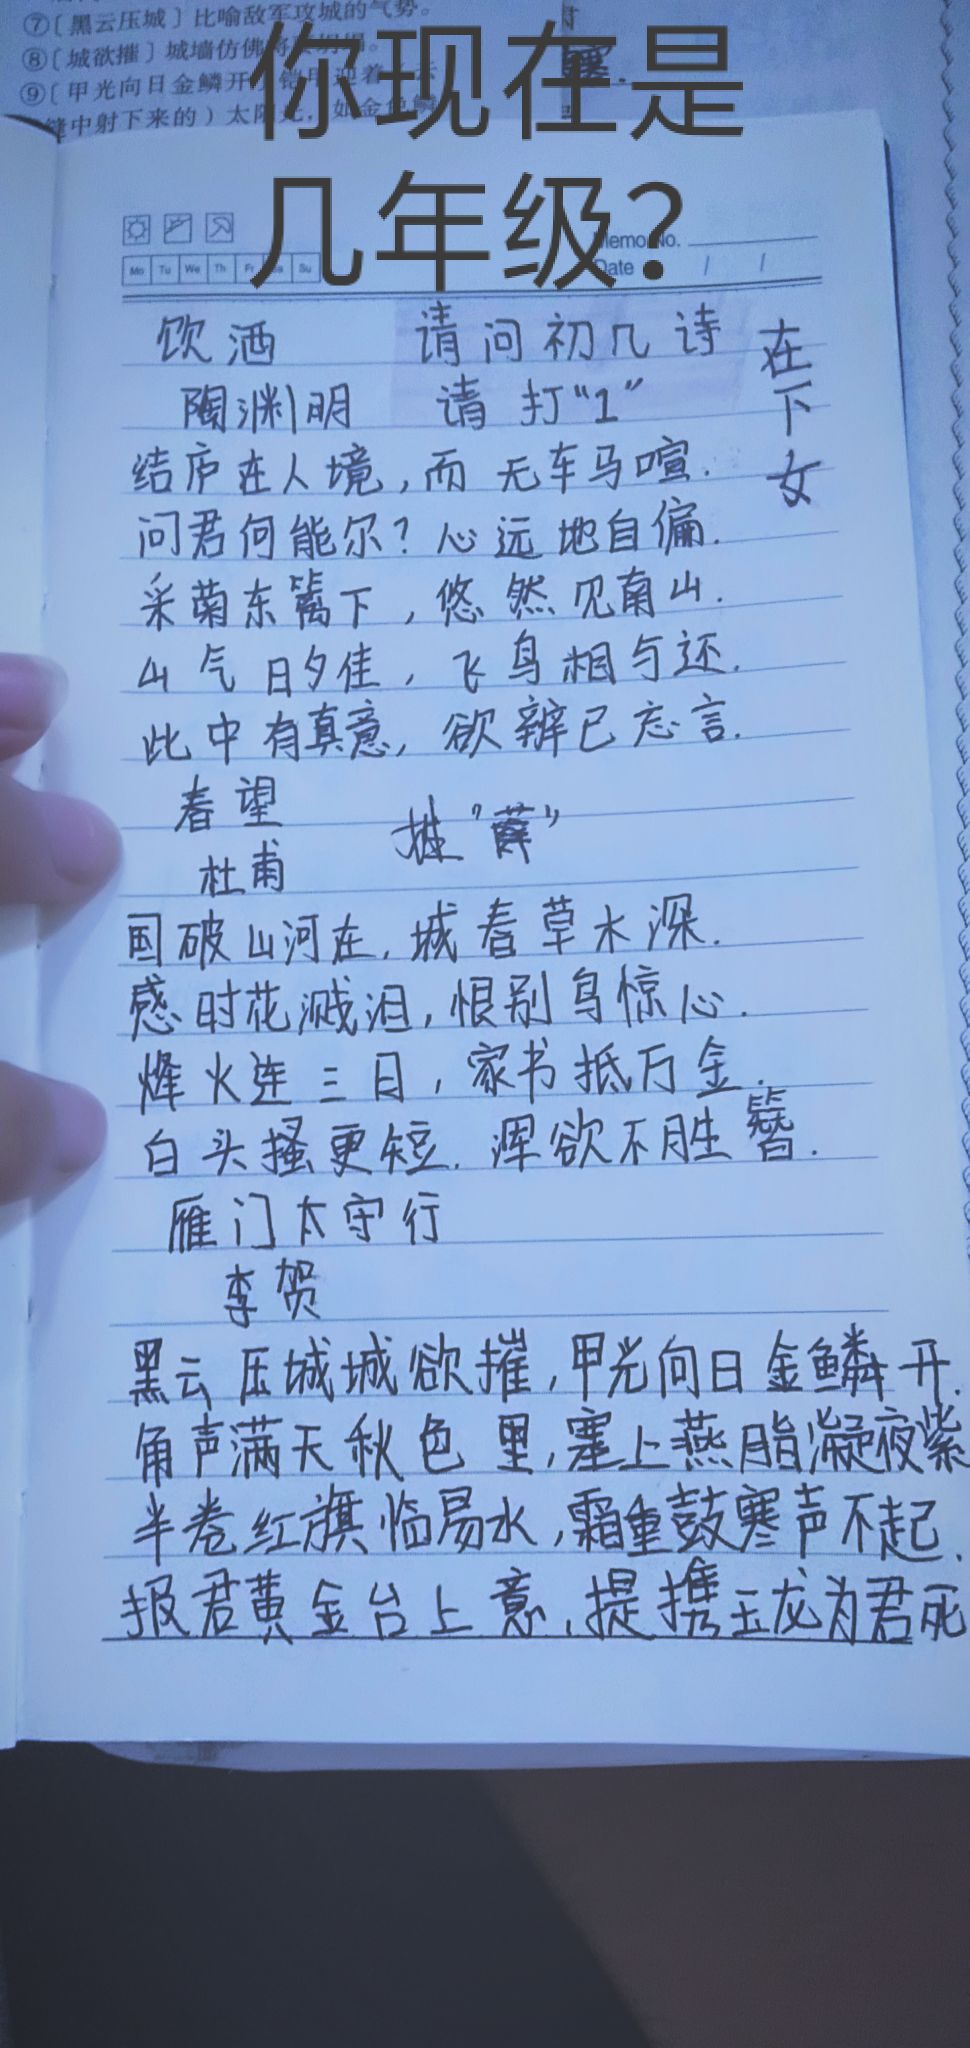 ⑦〔黑云压城〕比喻敌军攻城的气势。
⑧〔城欲摧〕城墙仿佛将
⑨〔甲光向日金鳞开〕铠甲迎着
缝中射下来的）太阳光，如金色鳞
你现在是
几年级？
Memo No.
Date / /
Mo Tu We Th Fr Sa Su
饮酒 请问初几诗
陶渊明 请打“1”
在下女
结庐在人境，而无车马喧.
问君何能尔？心远地自偏.
采菊东篱下，悠然见南山.
山气日夕佳，飞鸟相与还.
此中有真意，欲辨已忘言.
春望
杜甫 “薛”
国破山河在，城春草木深.
感时花溅泪，恨别鸟惊心.
烽火连三日，家书抵万金.
白头搔更短.浑欲不胜簪.
雁门太守行
李贺
黑云压城城欲摧，甲光向日金鳞开.
角声满天秋色里，塞上燕脂凝夜紫
半卷红旗临易水，霜重鼓寒声不起.
报君黄金台上意，提携玉龙为君死